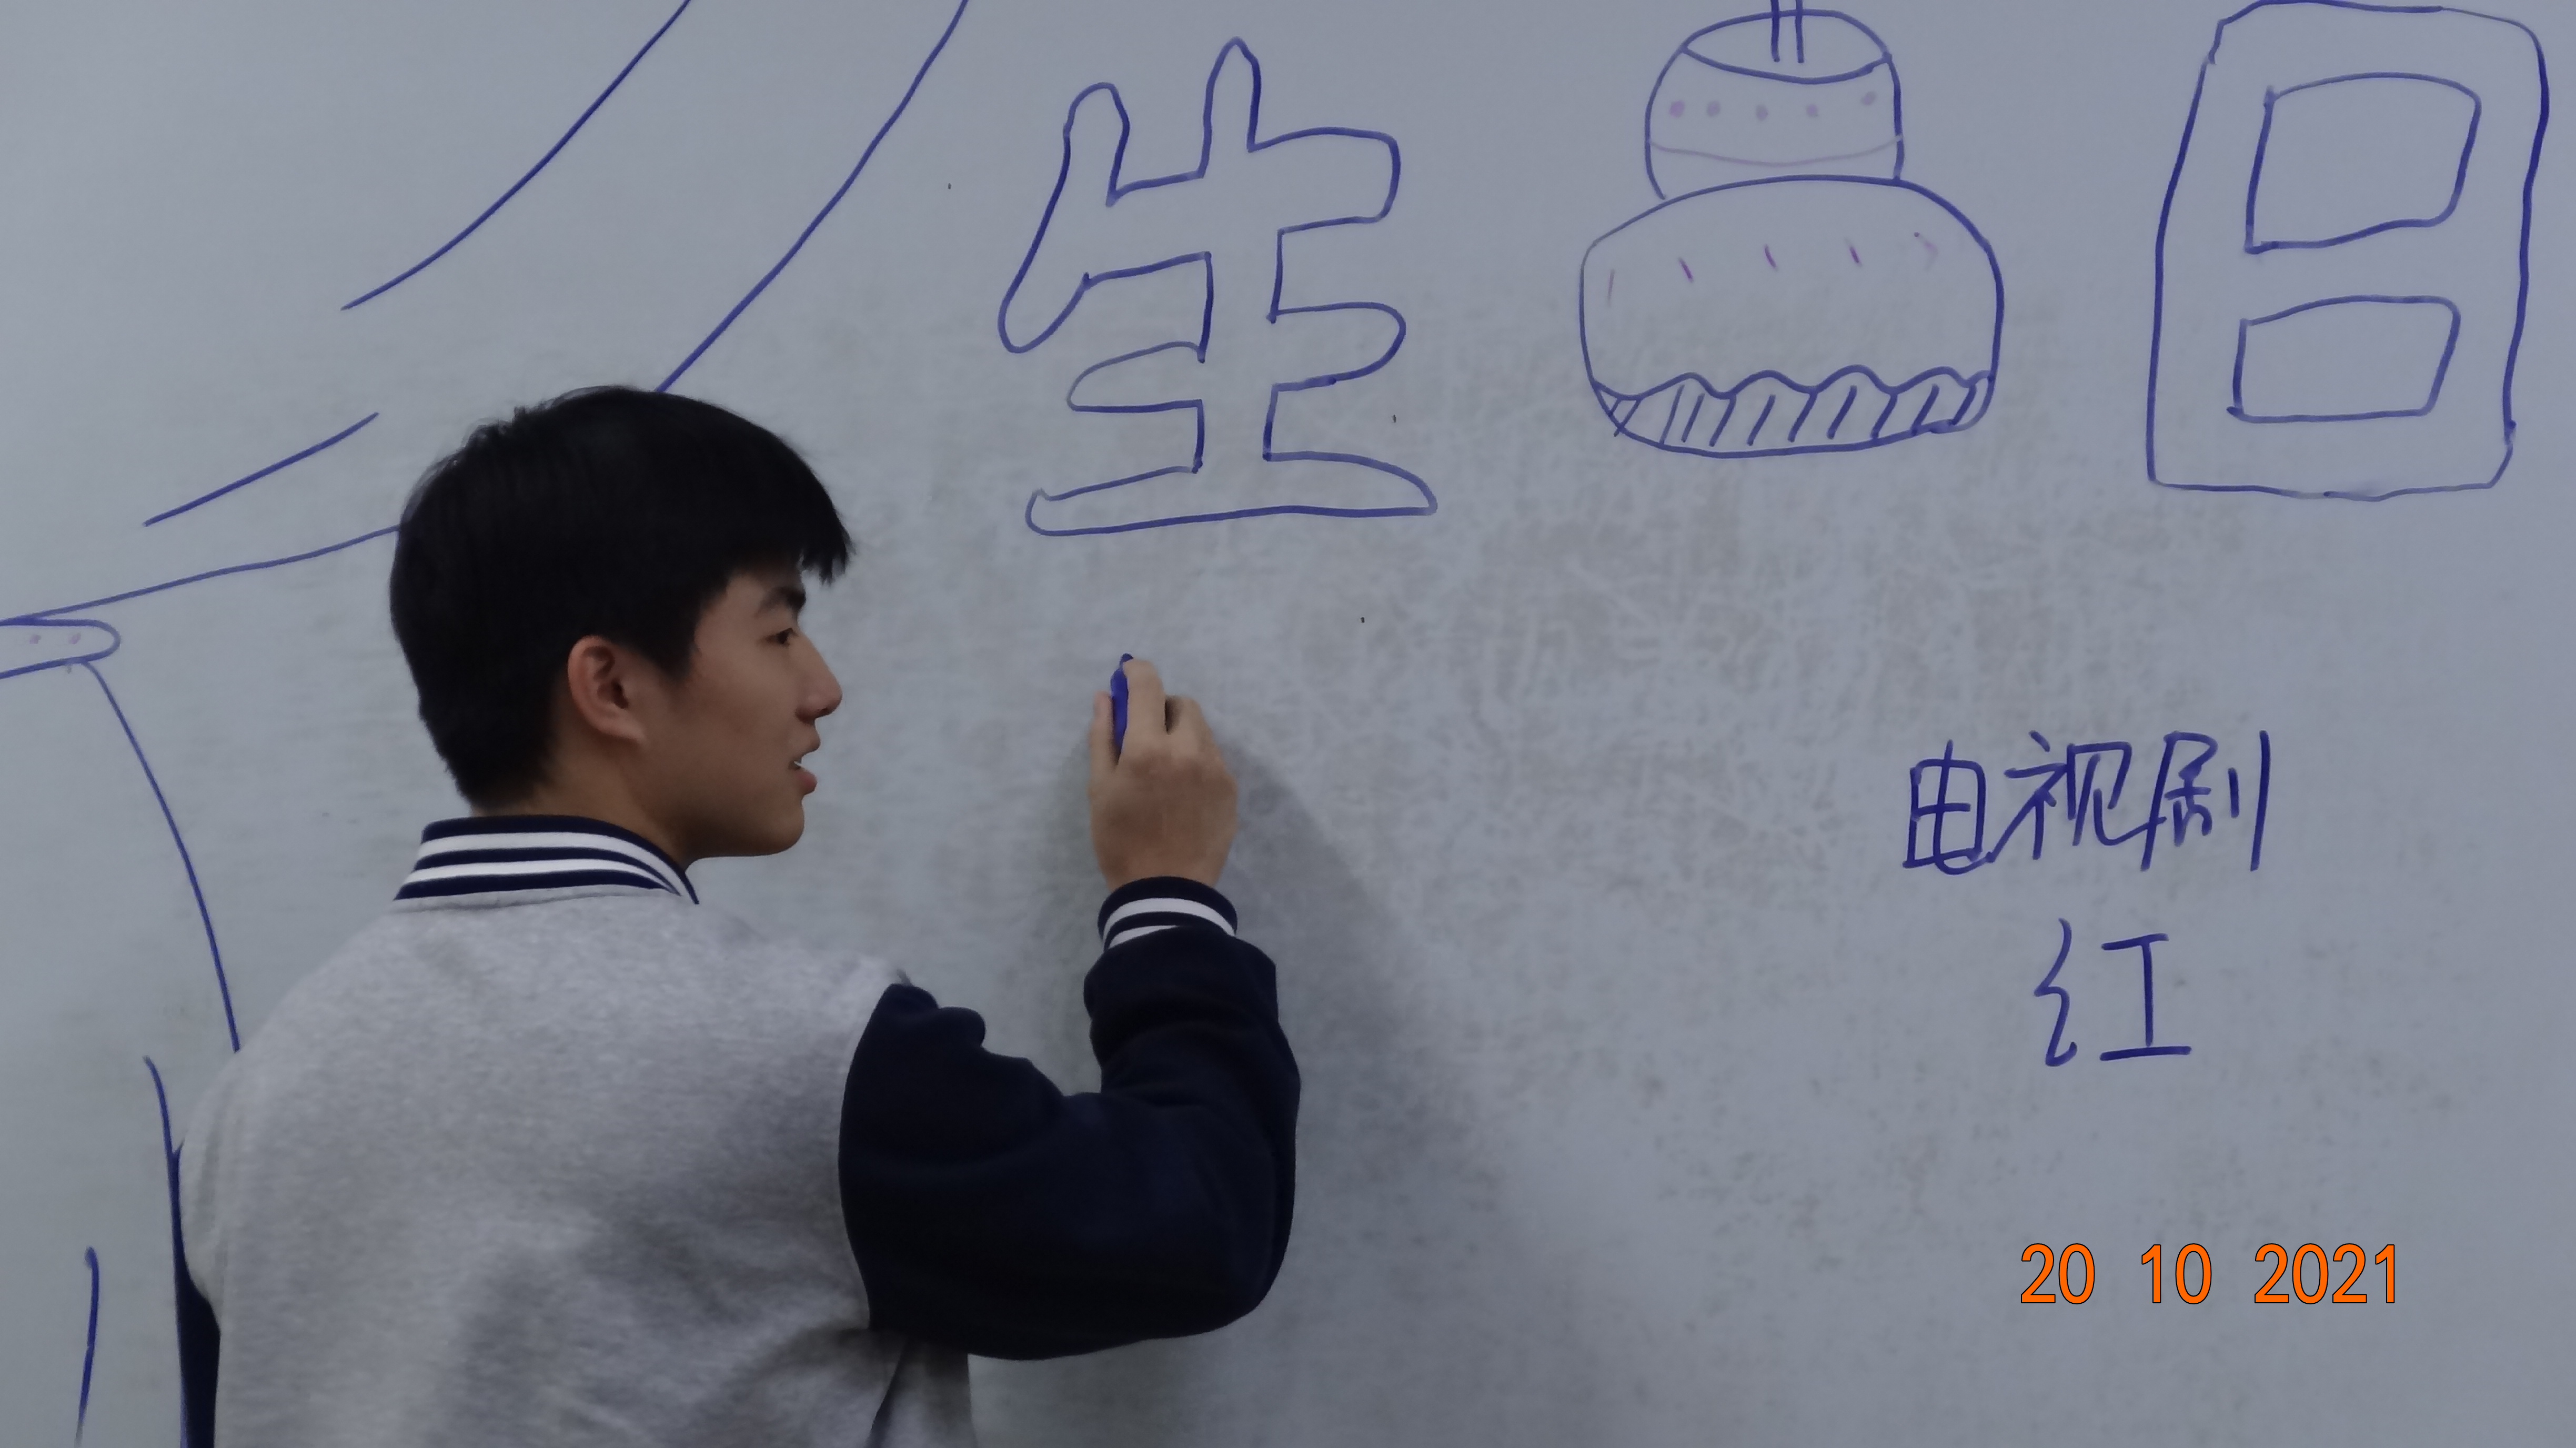 生日
电视剧
红
20 10 2021